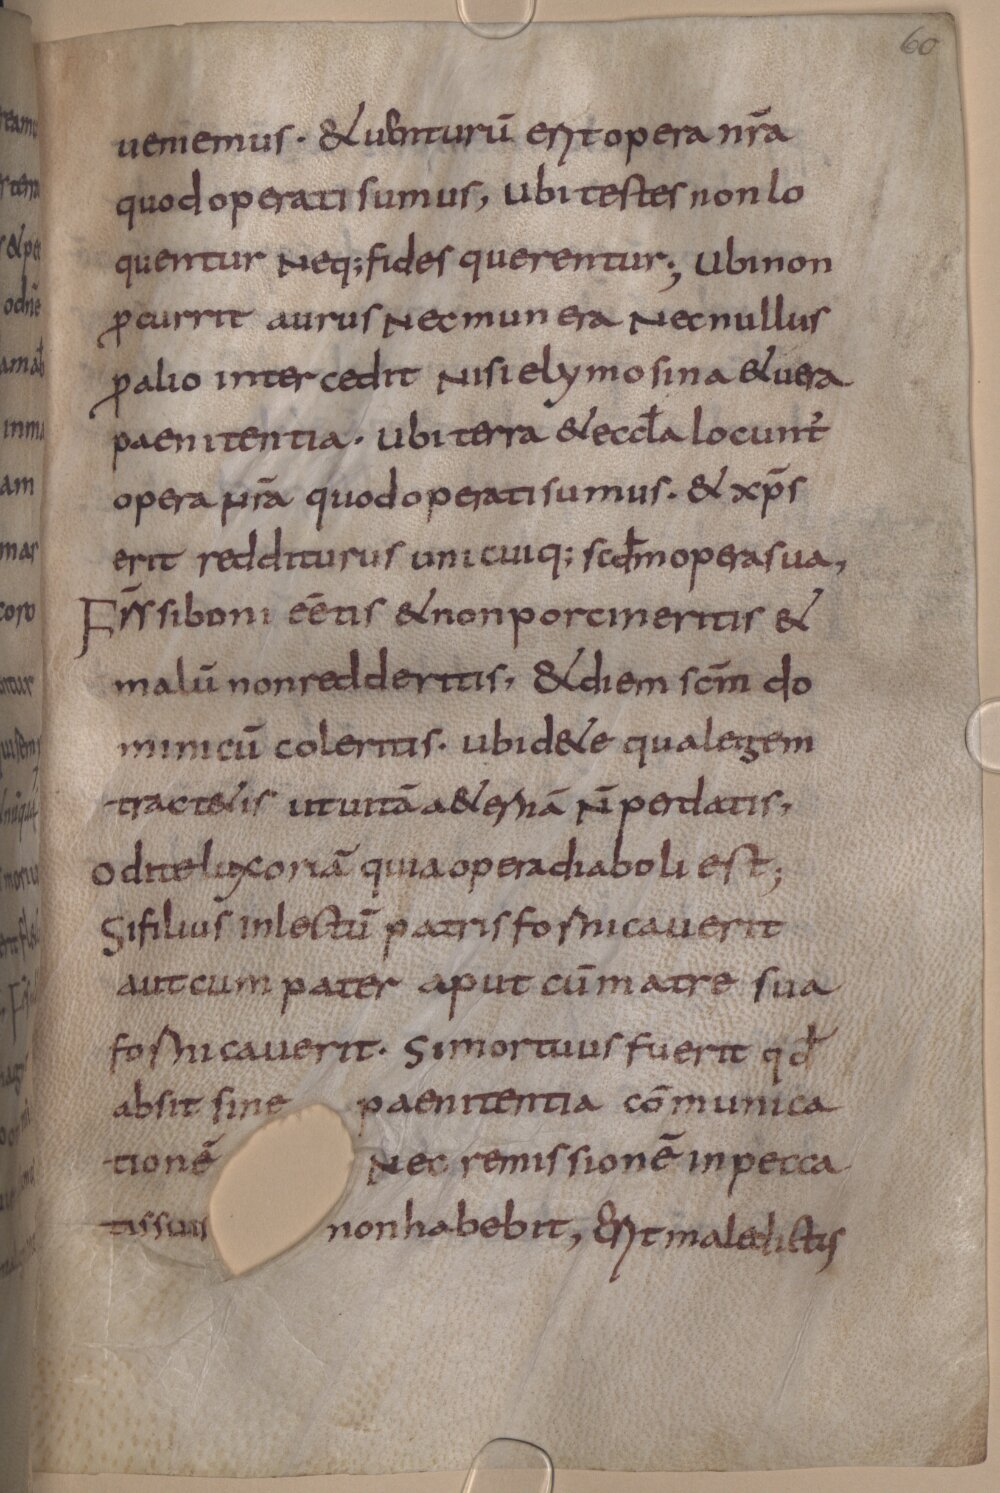 60
ueniemus · & uenturū erit opera nr̄a
quod operati sumus, ubi testes non lo
quentur neq; fides querentur; ubi non
ꝓcurrit aurus nec munera nec nullus
ꝓ alio inter cedit nisi elymosina & uera
paenitentia · ubi terra & eccl̄a locunt̄
opera nr̄a quod operati sumus · & xp̄s
erit redditurus unicuiq; scd̄m opera sua,
Fr̄s si boni eētis & non porcineritis &
malū non redderitis, & diem sc̄m do
minicū coleritis · ubi de& e qua legem
tract&is ut uitā a&ernā n̄ perdatis,
odite luxoriā quia opera diaboli est;
Si filius in lectū patris fornicauerit
aut cum pater aput cū matre sua
fornicauerit · Si mortuus fuerit qd̄
absit sine paenitentia cōmunica
tionē nec remissionē in pecca
tis suis non habebit, Erit maledictis